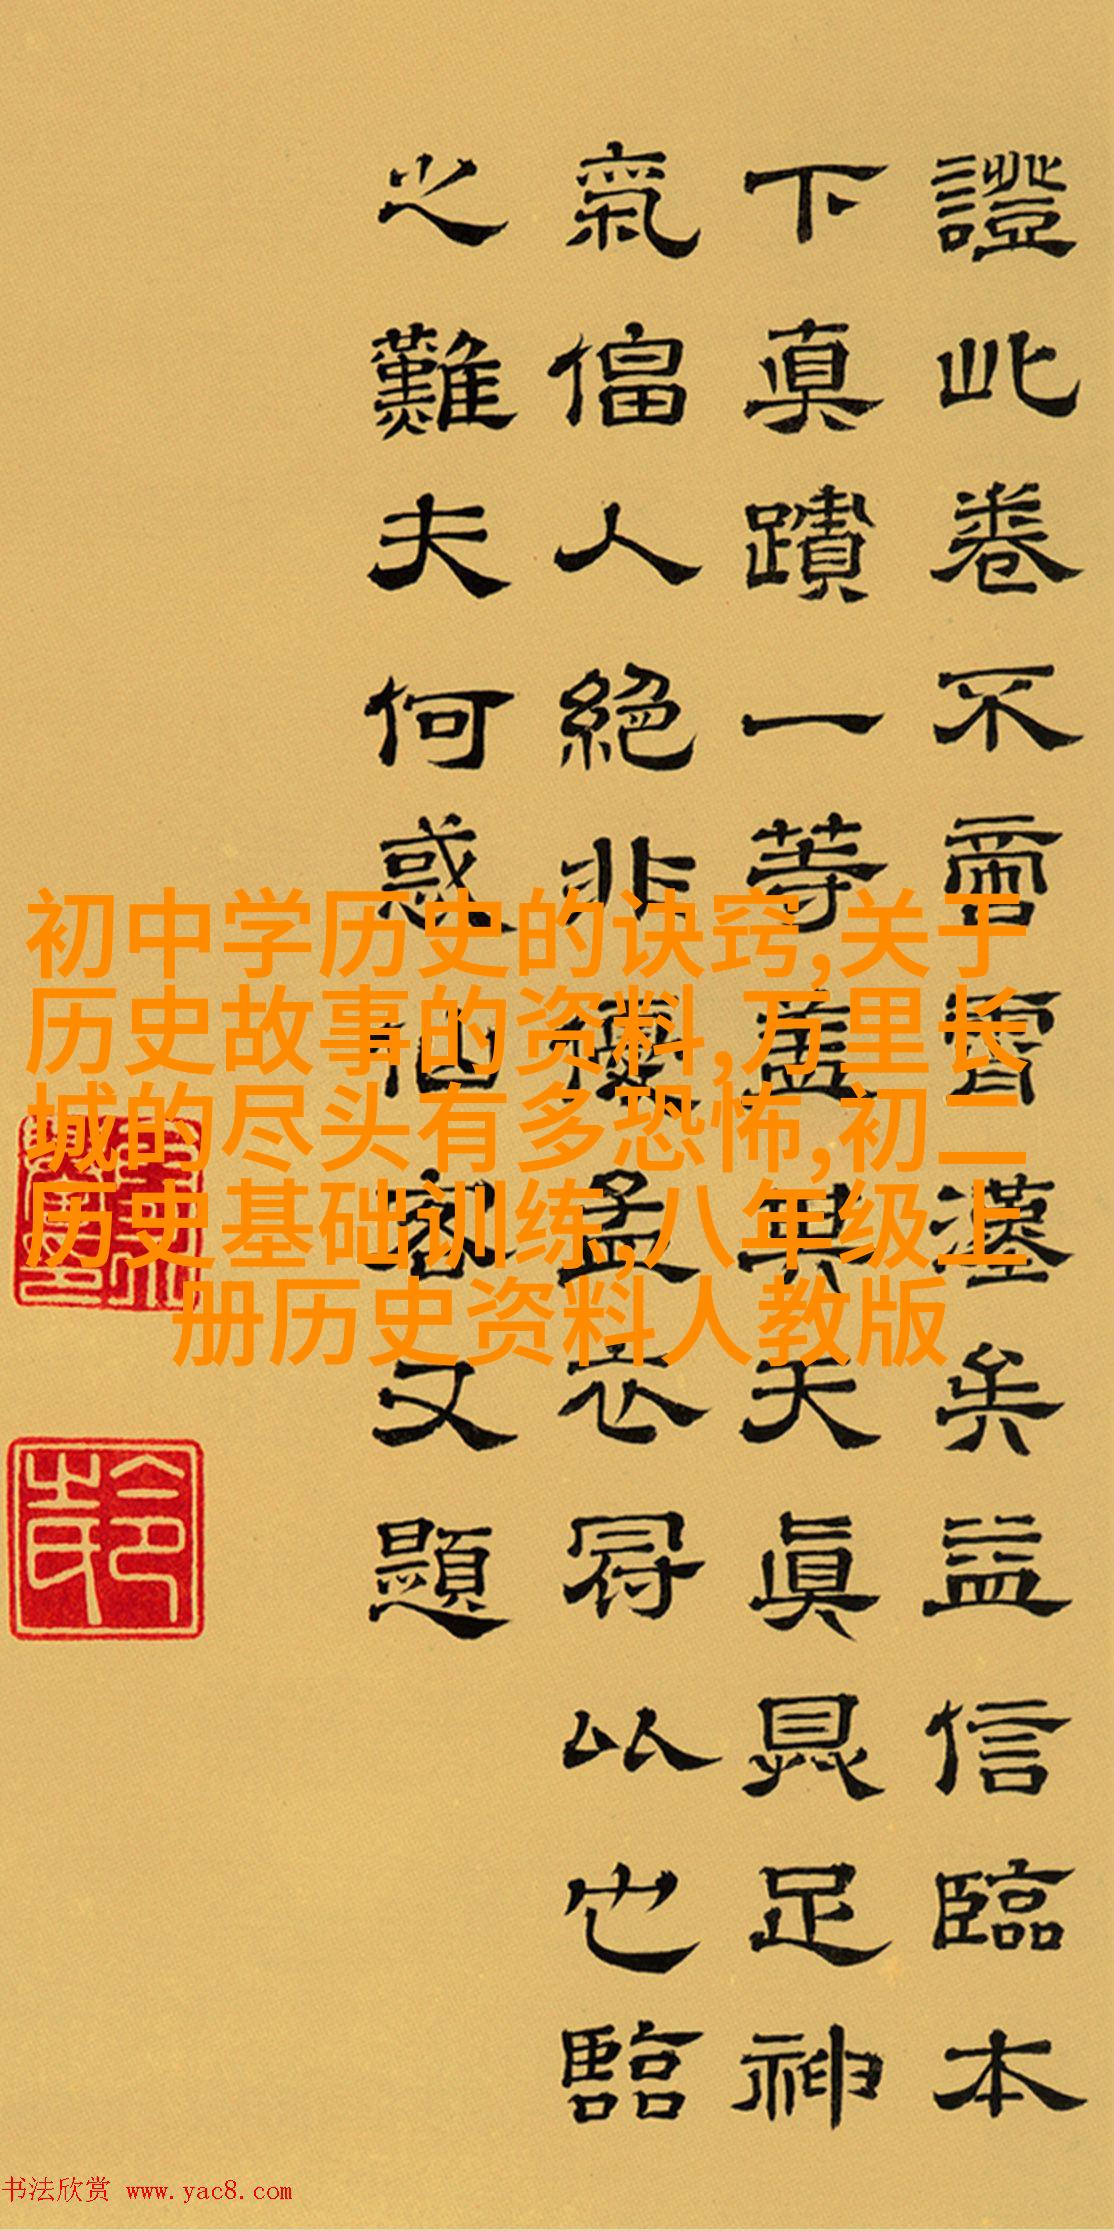 證此卷不啻霄漢矣益信臨本
下真蹟一等蓋其天真具足神
氣偪人絕非優孟衣冠以也臨
之難夫何惑㐰客又題
初中学历史的诀窍,关于
历史故事的资料,万里长
城的尽头有多恐怖,初二
历史基础训练,八年级上
册历史资料人教版
书法欣赏 www.yac8.com